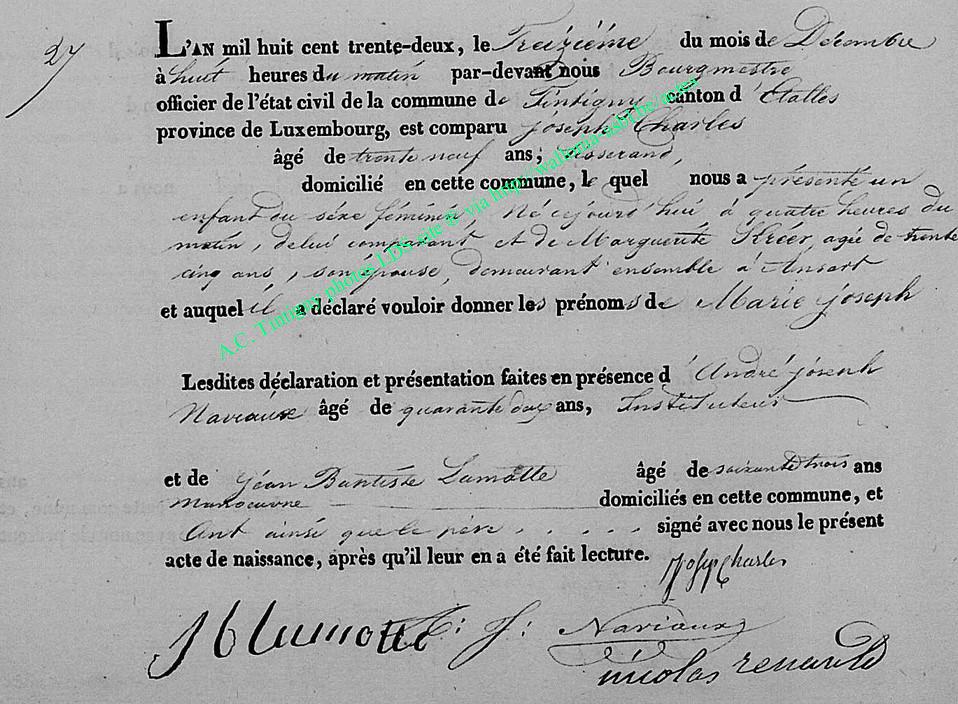 27
L'AN mil huit cent trente-deux, le Treizième du mois de Décembre
à huit heures du matin par-devant nous Bourgmestre
officier de l'état civil de la commune de Tintigny canton d'Étalles
province de Luxembourg, est comparu Joseph Charles
âgé de trente neuf ans, tisserand,
domicilié en cette commune, le quel nous a présenté un
enfant du séxe féminin, Né cejourd'hui à quatre heures du
matin, de lui comparant et de Marguerite Kréer, agée de trente
cinq ans, son épouse, demeurant ensemble à Ansart
et auquel il a déclaré vouloir donner les prénoms de Marie joseph
Lesdites déclaration et présentation faites en présence d'André joseph
Naviaux âgé de quarante deux ans, Instituteur
et de Jéan Baptiste Lamotte âgé de soixante trois ans
Manoeuvre domiciliés en cette commune, et
Ont ainsi que le père . . . . . signé avec nous le présent
acte de naissance, après qu'il leur en a été fait lecture.
Joseph Charles
J B Lamotte A: J: Naviaux
nicolas renauld
A.C. Tintigny photos LDS site © via http://wallonia-asbl.be/actes